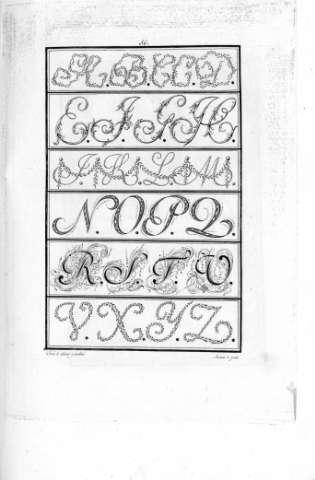 A.B.C.D.
E.F.G.H.
I.K.L.M.
N.O.P.Q.
R.S.T.U.
V.X.Y.Z.